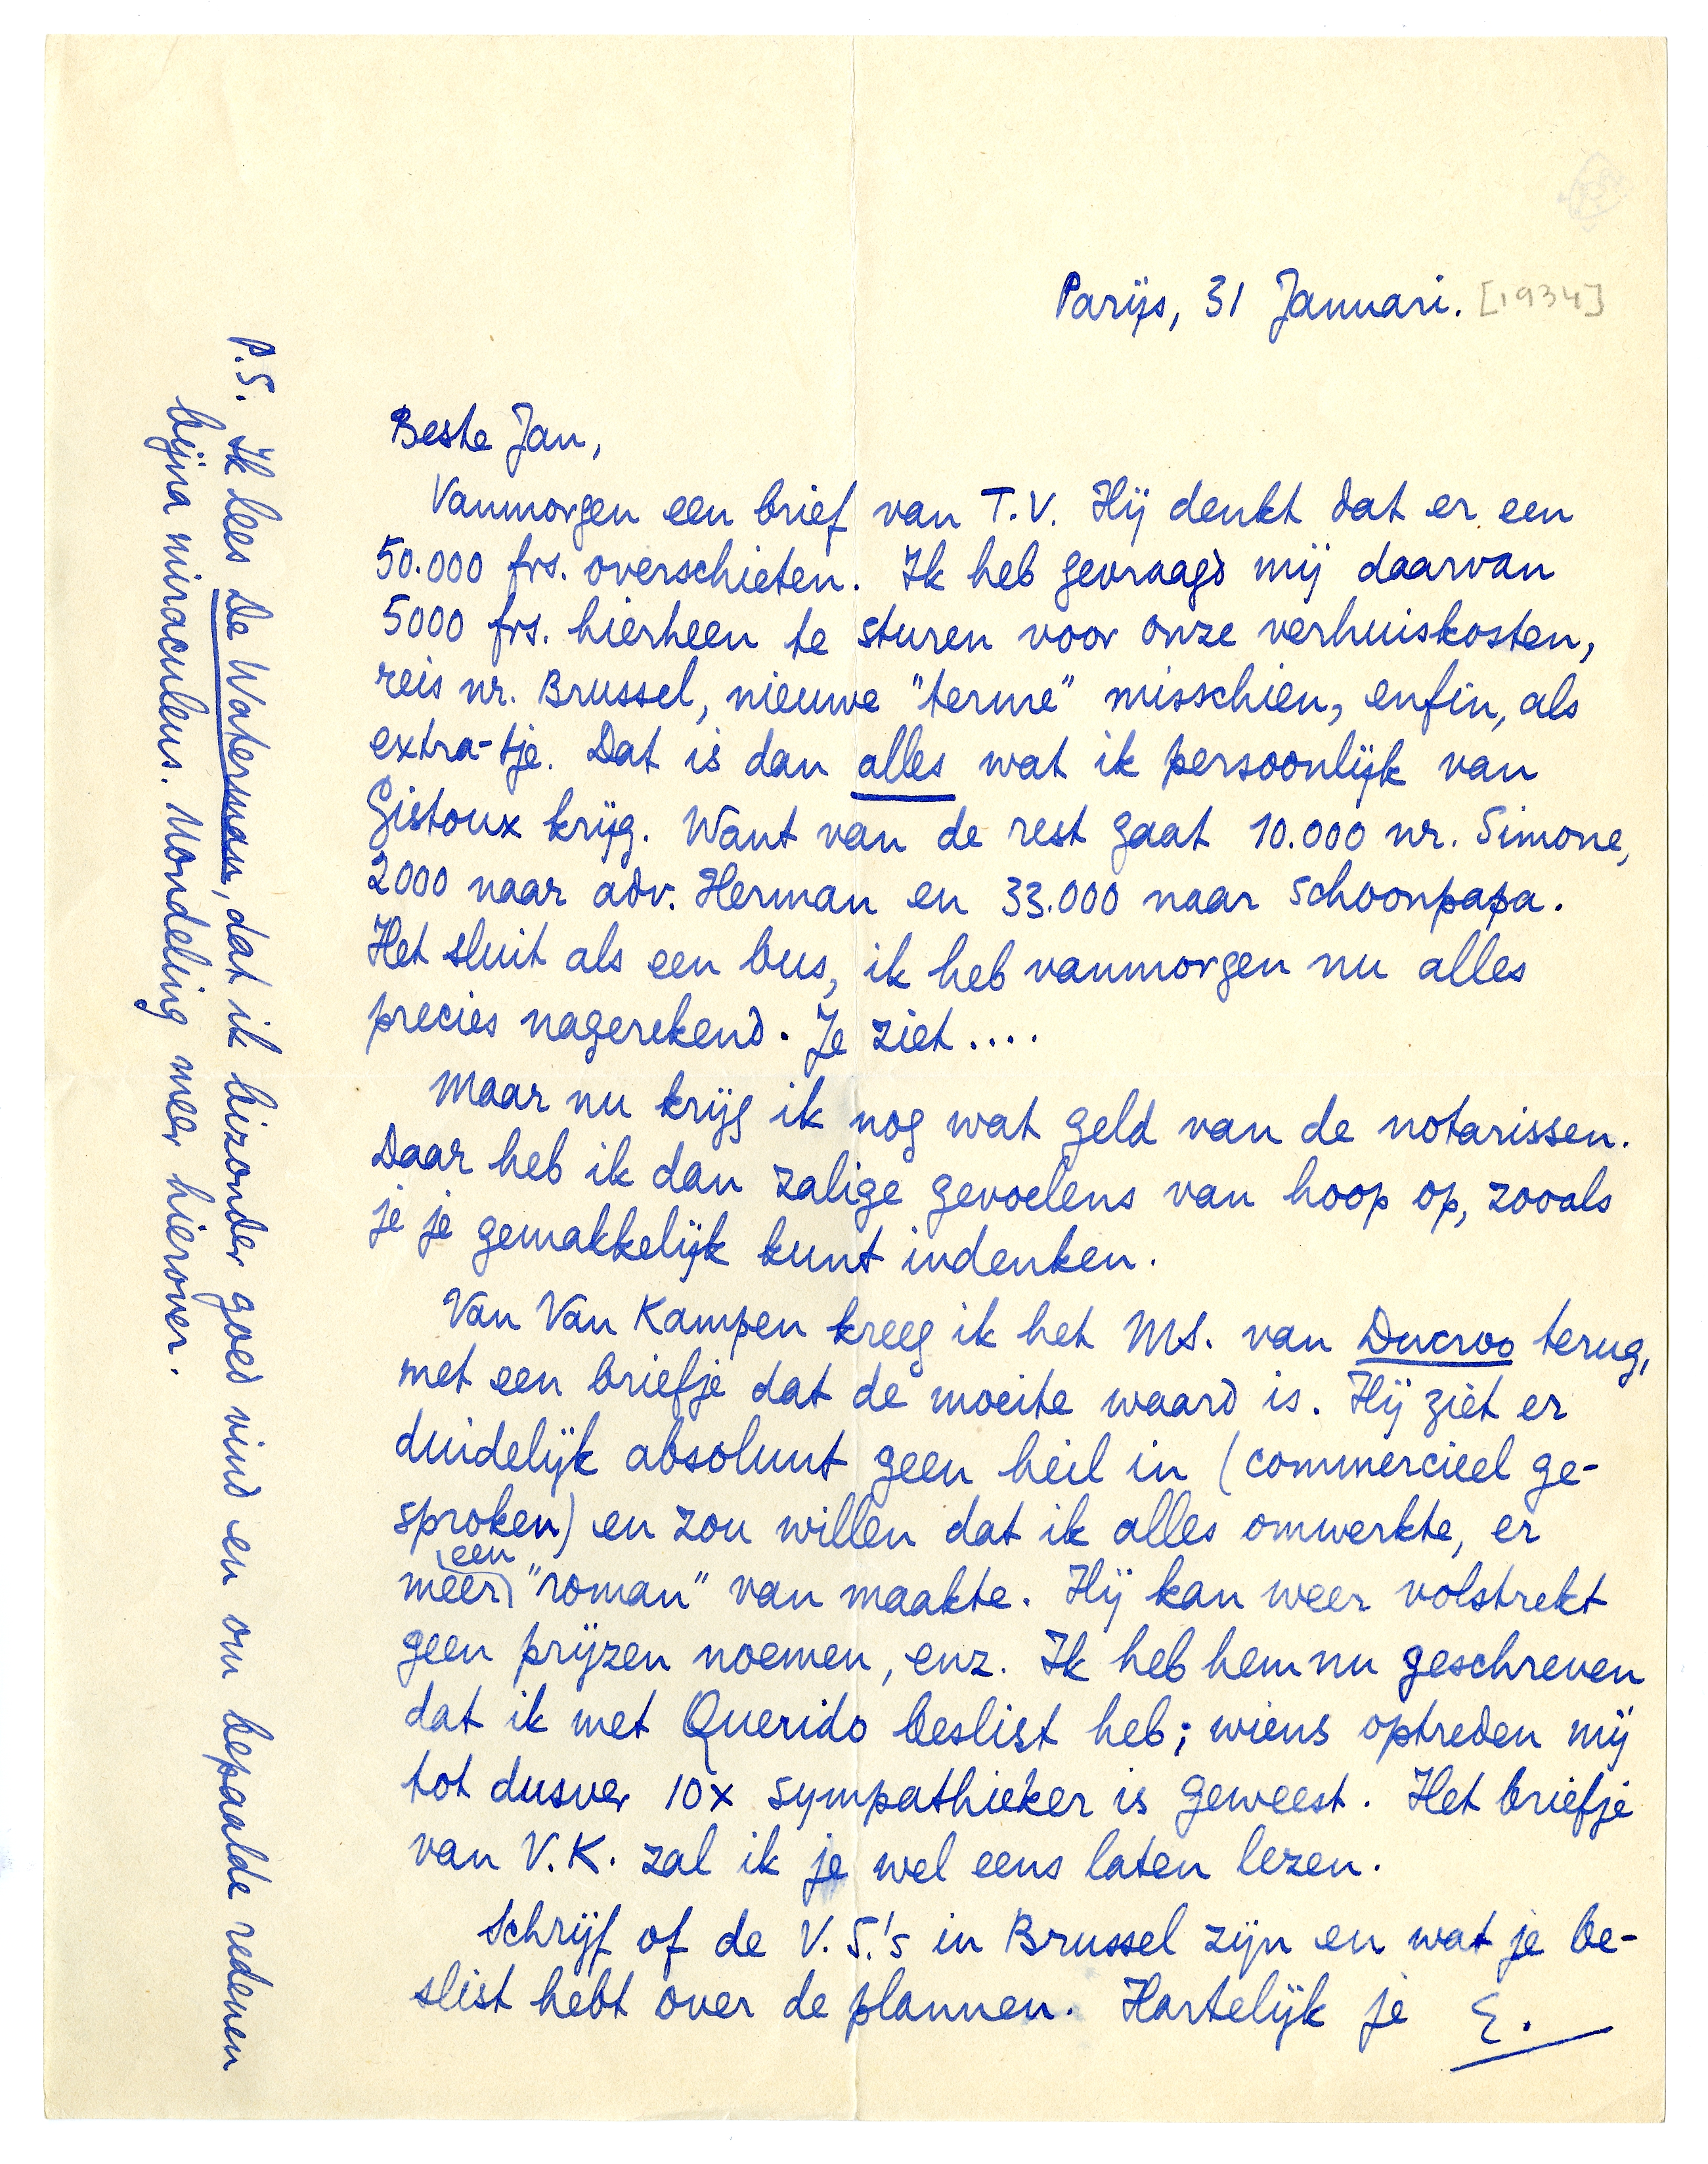 Parijs, 31 Januari. [1934]
Beste Jan,
Vanmorgen een brief van T.V. Hij denkt dat er een
50.000 frs. overschieten. Ik heb gevraagd mij daarvan
5000 frs. hierheen te sturen voor onze verhuiskosten,
reis nr. Brussel, nieuwe "terme" misschien, enfin, als
extra-tje. Dat is dan alles wat ik persoonlijk van
Gistoux krijg. Want van de rest gaat 10.000 nr. Simone,
2000 naar adv. Herman en 33.000 naar schoonpapa.
Het sluit als een bus, ik heb vanmorgen nu alles
precies nagerekend. Je ziet....
Maar nu krijg ik nog wat geld van de notarissen.
Daar heb ik dan zalige gevoelens van hoop op, zooals
je je gemakkelijk kunt indenken.
Van Van Kampen kreeg ik het MS. van Ducroo terug,
met een briefje dat de moeite waard is. Hij ziet er
duidelijk absoluut geen heil in (commercieel ge-
sproken) en zou willen dat ik alles omwerkte, er
meer een "roman" van maakte. Hij kan weer volstrekt
geen prijzen noemen, enz. Ik heb hem nu geschreven
dat ik met Querido beslist heb; wiens optreden mij
tot dusver 10x sympathieker is geweest. Het briefje
van V.K. zal ik je wel eens laten lezen.
Schrijf of de V.S.'s in Brussel zijn en wat je be-
slist hebt over de plannen. Hartelijk je E.
P.S. Ik lees De Waterman, dat ik bizonder goed vind en om bepaalde redenen
bijna miraculeus. Mondeling meer hierover.